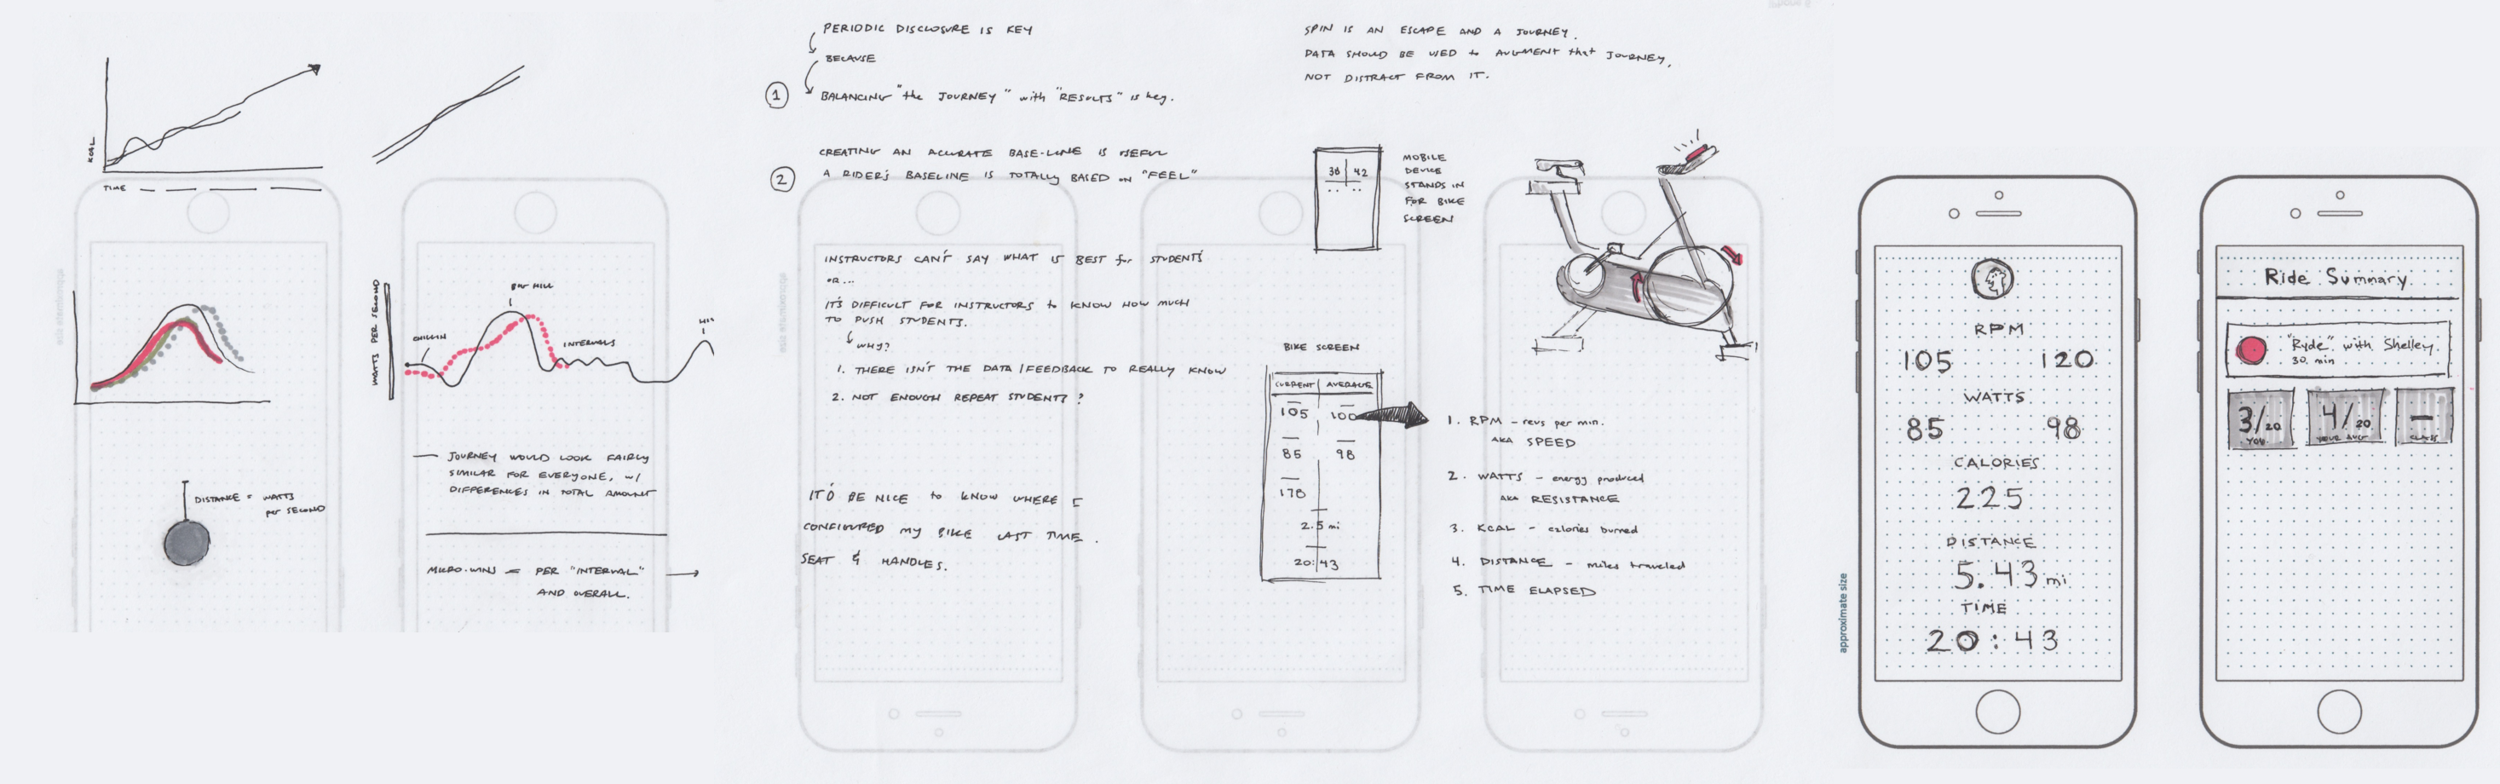 KCAL
TIME
DISTANCE = WATTS
per SECOND
WATTS PER SECOND
CHILLIN
BIG HILL
INTERVALS
JOURNEY WOULD LOOK FAIRLY
SIMILAR FOR EVERYONE, W/
DIFFERENCES IN TOTAL AMOUNT
MICRO-WINS = PER "INTERVAL"
AND OVERALL.
PERIODIC DISCLOSURE IS KEY
BECAUSE
1
BALANCING "the JOURNEY" with "RESULTS" is key.
2
CREATING AN ACCURATE BASE-LINE IS USEFUL
A RIDER'S BASELINE IS TOTALLY BASED ON "FEEL"
INSTRUCTORS CAN'T SAY WHAT IS BEST for STUDENTS
OR...
IT'S DIFFICULT FOR INSTRUCTORS to KNOW HOW MUCH
TO PUSH STUDENTS.
WHY?
1. THERE ISN'T THE DATA / FEEDBACK TO REALLY KNOW
2. NOT ENOUGH REPEAT STUDENTS?
IT'D BE NICE to KNOW WHERE I
CONFIGURED MY BIKE LAST TIME.
SEAT & HANDLES.
SPIN IS AN ESCAPE AND A JOURNEY.
DATA SHOULD BE USED to AUGMENT that JOURNEY,
NOT DISTRACT FROM IT.
36 42
MOBILE
DEVICE
STANDS IN
FOR BIKE
SCREEN
BIKE SCREEN
CURRENT AVERAGE
105 100
85 98
178
2.5 mi
20:43
1. RPM - revs per min.
AKA SPEED
2. WATTS - energy produced
AKA RESISTANCE
3. KCAL - calories burned
4. DISTANCE - miles traveled
5. TIME ELAPSED
approximate size
RPM
105 120
WATTS
85 98
CALORIES
225
DISTANCE
5.43 mi
TIME
20:43
Ride Summary
"Ryde" with Shelley
30 min
3/20 4/20 —
YOU YOUR AVG CLASS